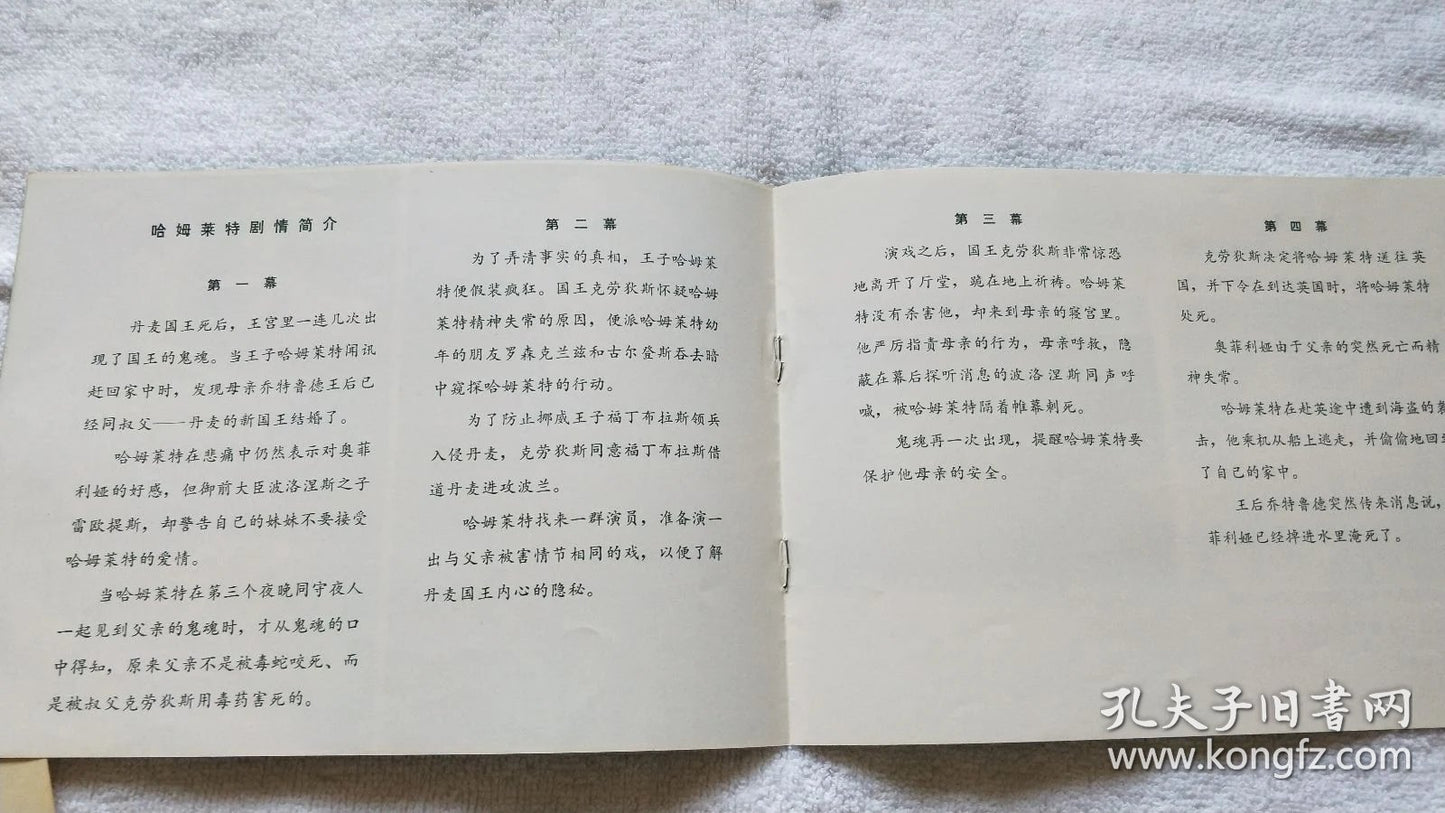 哈姆莱特剧情简介
第一幕
丹麦国王死后，王宫里一连几次出
现了国王的鬼魂。当王子哈姆莱特闻讯
赶回家中时，发现母亲乔特鲁德王后已
经同叔父——丹麦的新国王结婚了。
哈姆莱特在悲痛中仍然表示对奥菲
利娅的好感，但御前大臣波洛涅斯之子
雷欧提斯，却警告自己的妹妹不要接受
哈姆莱特的爱情。
当哈姆莱特在第三个夜晚同守夜人
一起见到父亲的鬼魂时，才从鬼魂的口
中得知，原来父亲不是被毒蛇咬死、而
是被叔父克劳狄斯用毒药害死的。
第二幕
为了弄清事实的真相，王子哈姆莱
特便假装疯狂。国王克劳狄斯怀疑哈姆
莱特精神失常的原因，便派哈姆莱特幼
年的朋友罗森克兰兹和古尔登斯吞去暗
中窥探哈姆莱特的行动。
为了防止挪威王子福丁布拉斯领兵
入侵丹麦，克劳狄斯同意福丁布拉斯借
道丹麦进攻波兰。
哈姆莱特找来一群演员，准备演一
出与父亲被害情节相同的戏，以便了解
丹麦国王内心的隐秘。
第三幕
演戏之后，国王克劳狄斯非常惊恐
地离开了厅堂，跪在地上祈祷。哈姆莱
特没有杀害他，却来到母亲的寝宫里。
他严厉指责母亲的行为，母亲呼救，隐
蔽在幕后探听消息的波洛涅斯同声呼
喊，被哈姆莱特隔着帷幕刺死。
鬼魂再一次出现，提醒哈姆莱特要
保护他母亲的安全。
第四幕
克劳狄斯决定将哈姆莱特送往英
国，并下令在到达英国时，将哈姆莱特
处死。
奥菲利娅由于父亲的突然死亡而精
神失常。
哈姆莱特在赴英途中遭到海盗的袭
击，他乘机从船上逃走，并偷偷地回到
了自己的家中。
王后乔特鲁德突然传来消息说，
菲利娅已经掉进水里淹死了。
孔夫子旧书网
www.kongfz.com